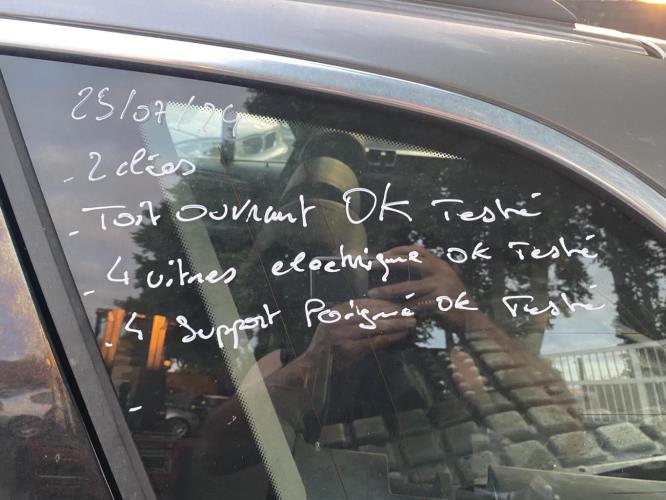 25/07/24
- 2 clées
- Toit ouvrant OK Testé
- 4 vitres electrique OK Testé
- 4 Support Poigné OK Testé
-